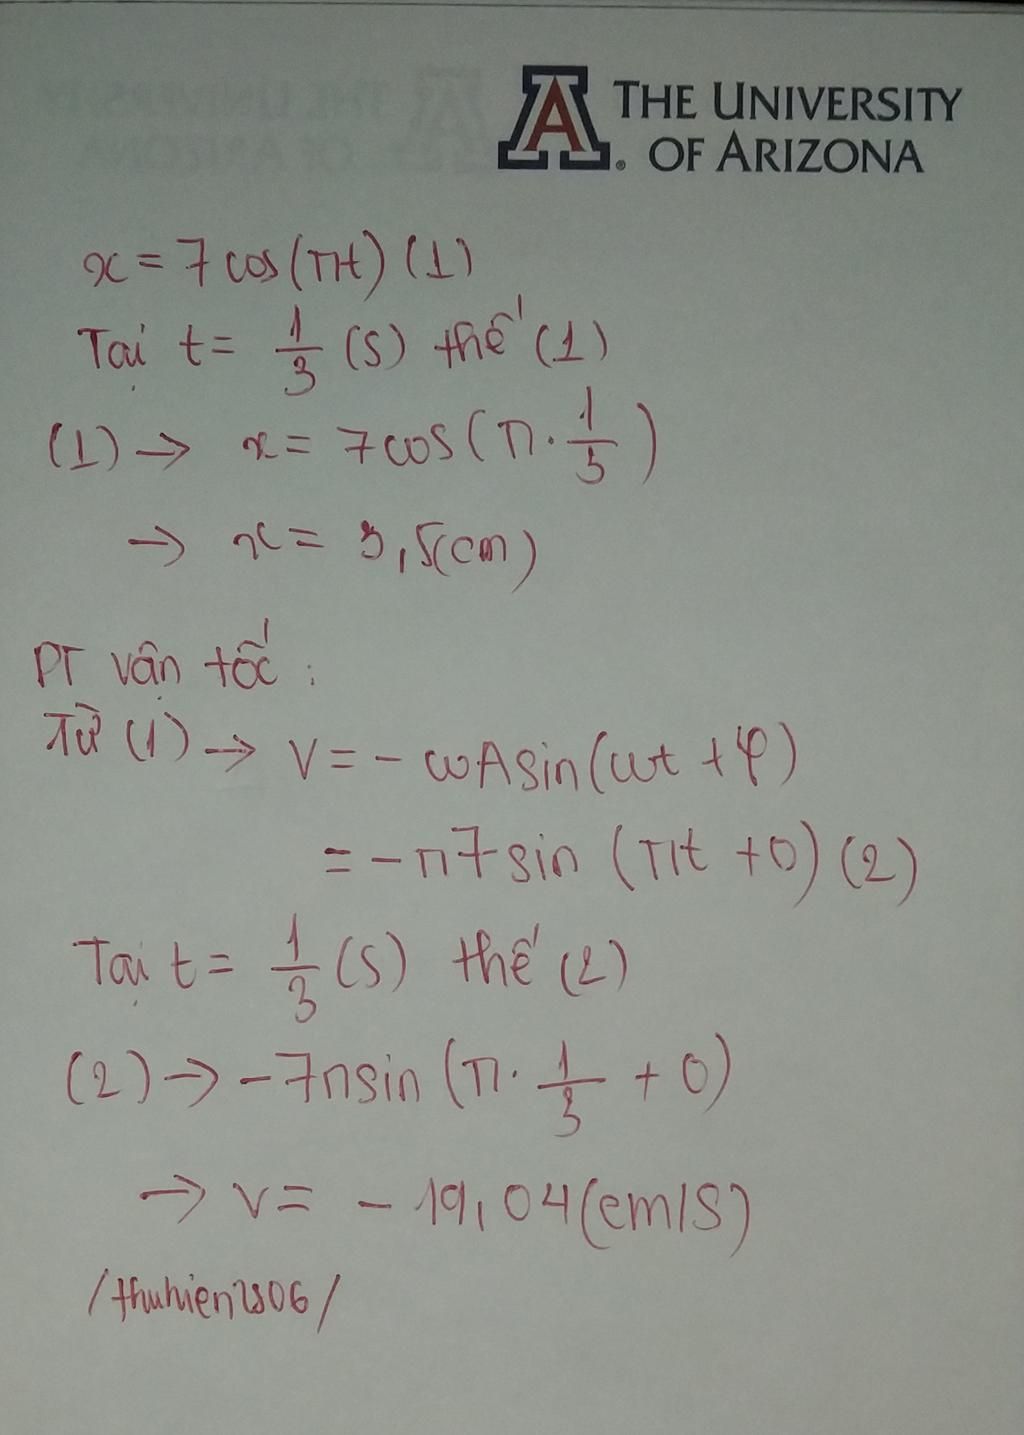 THE UNIVERSITY
OF ARIZONA
x = 7 cos(πt) (1)
Tại t = 1/3 (s) thế (1)
(1) → x = 7cos(π. 1/3)
→ x = 3,5(cm)
PT vận tốc :
Từ (1) → v = - ωAsin(ωt + φ)
= - π7 sin (πt + 0) (2)
Tại t = 1/3 (s) thế (2)
(2) → - 7πsin (π. 1/3 + 0)
→ v = - 19,04(cm/s)
/thuhien2806/